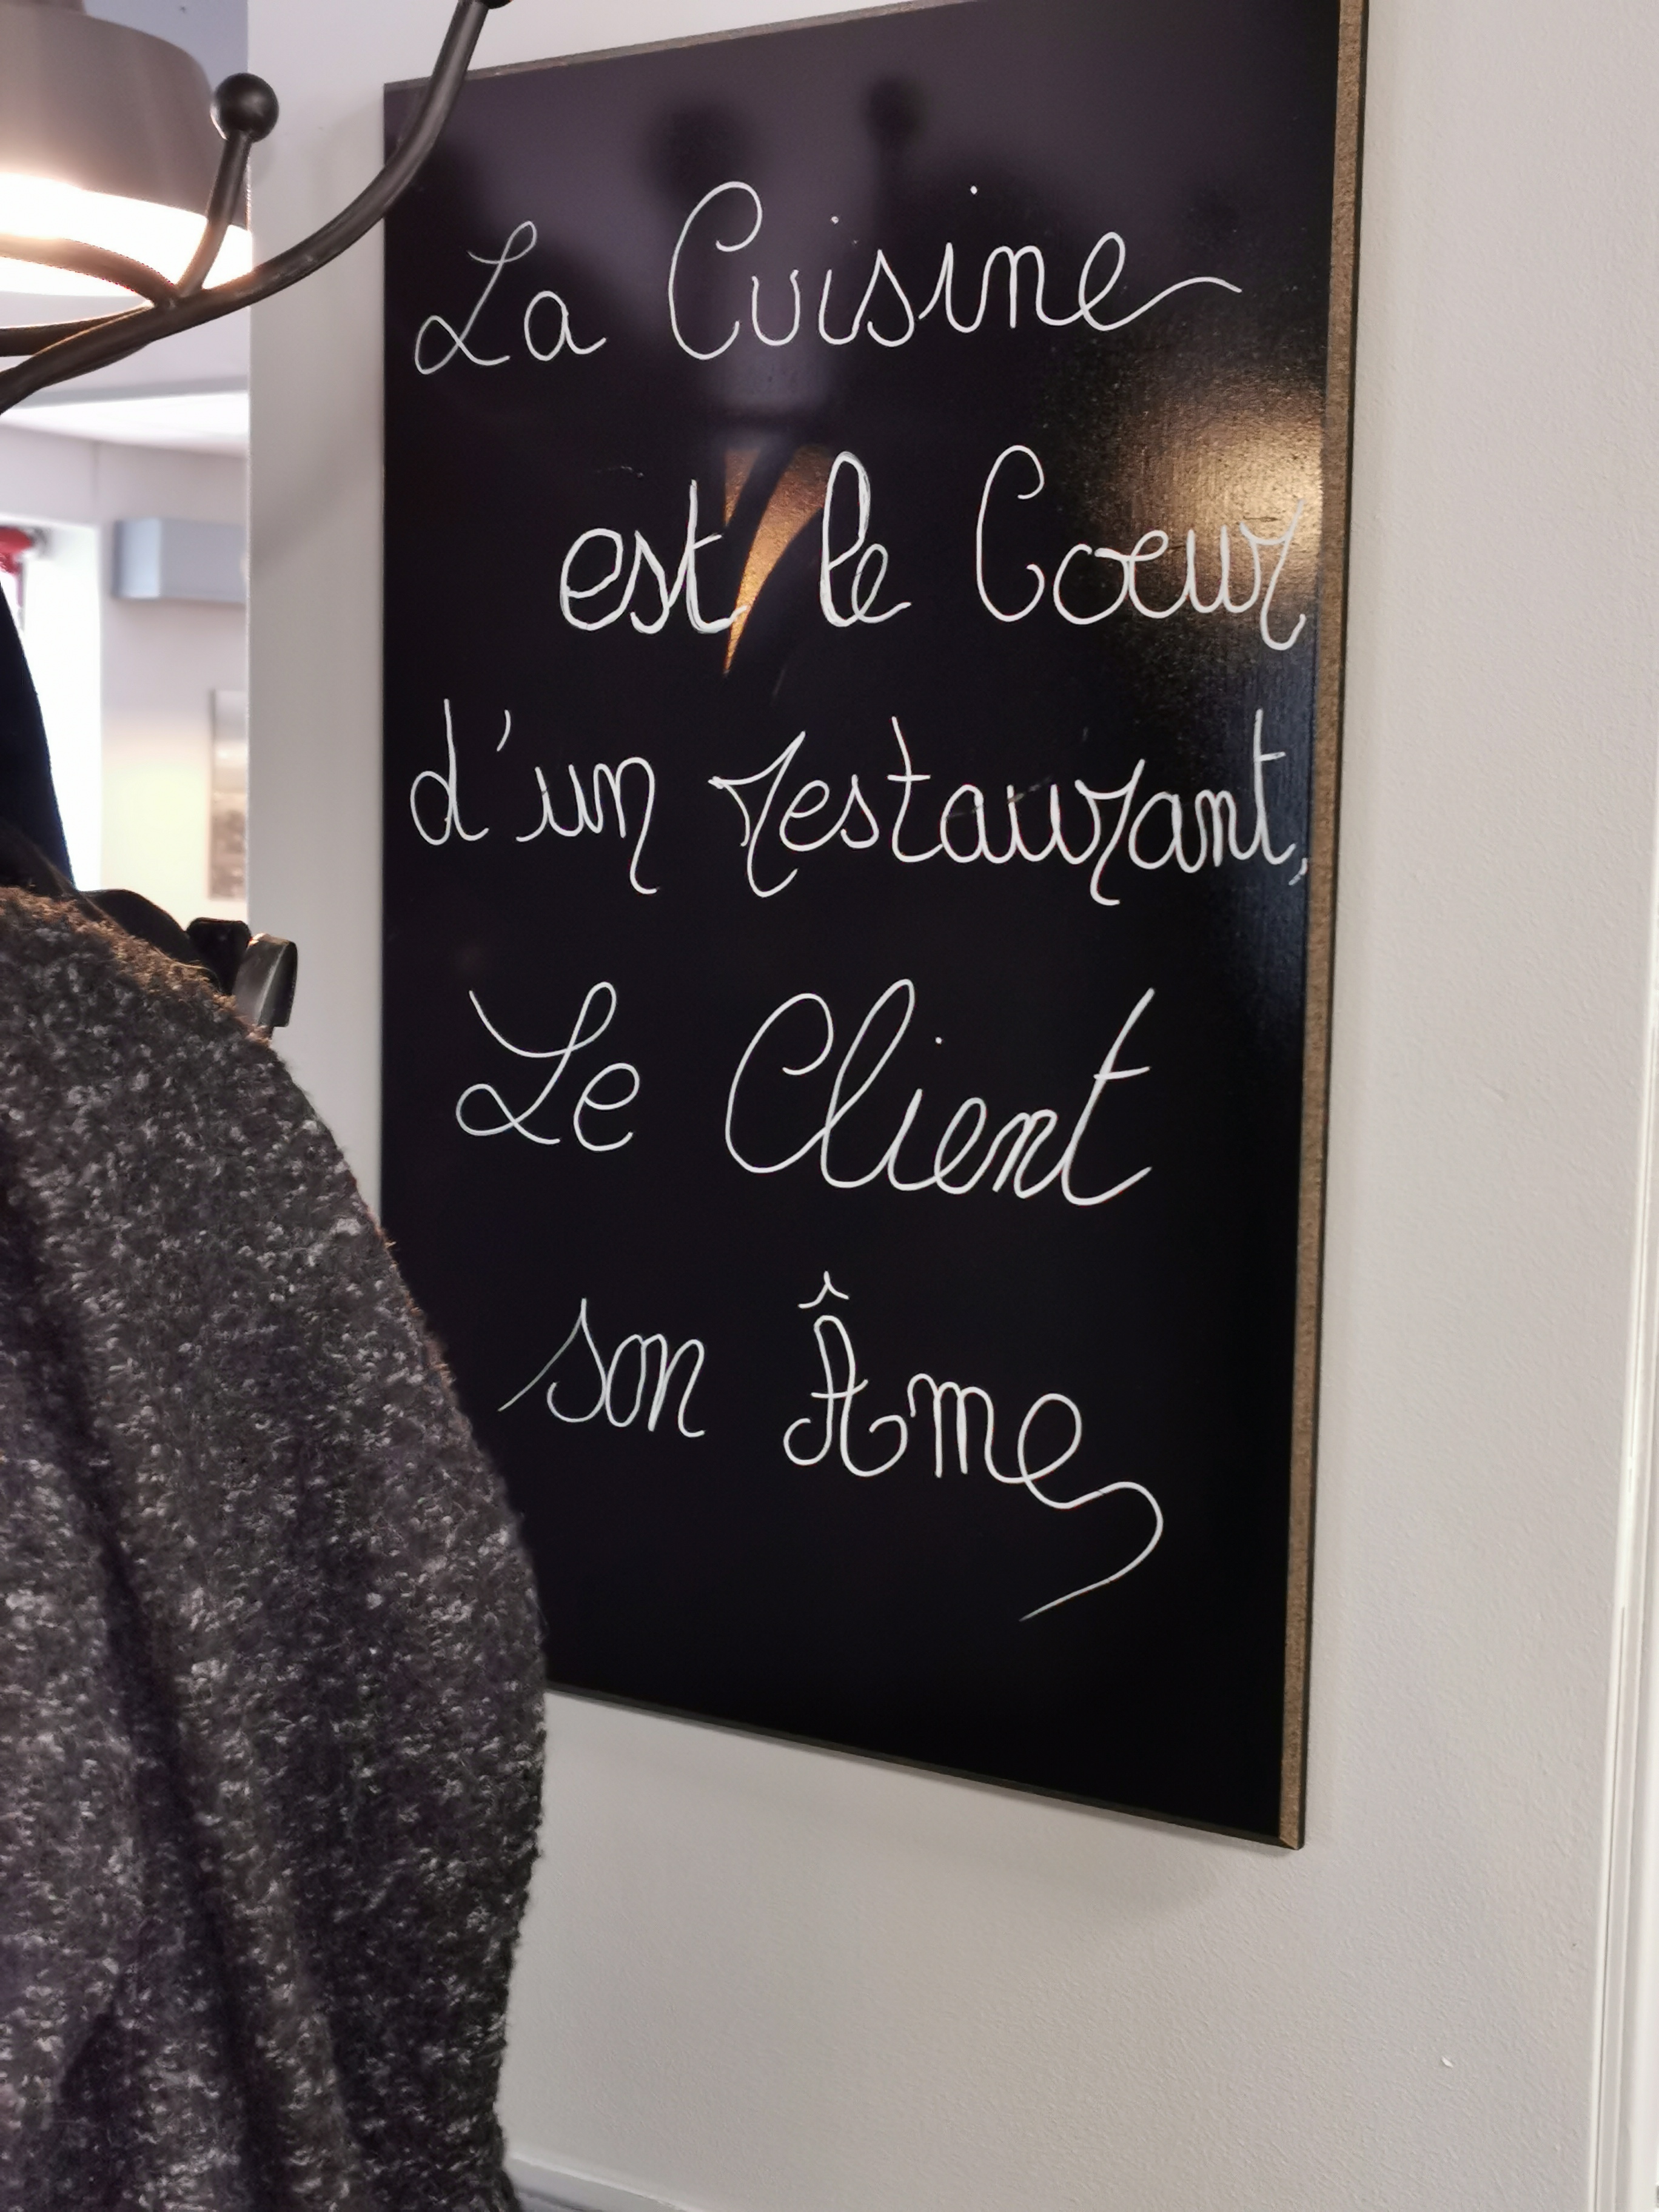 La Cuisine
est le Coeur
d'un restaurant,
Le Client
son Âme